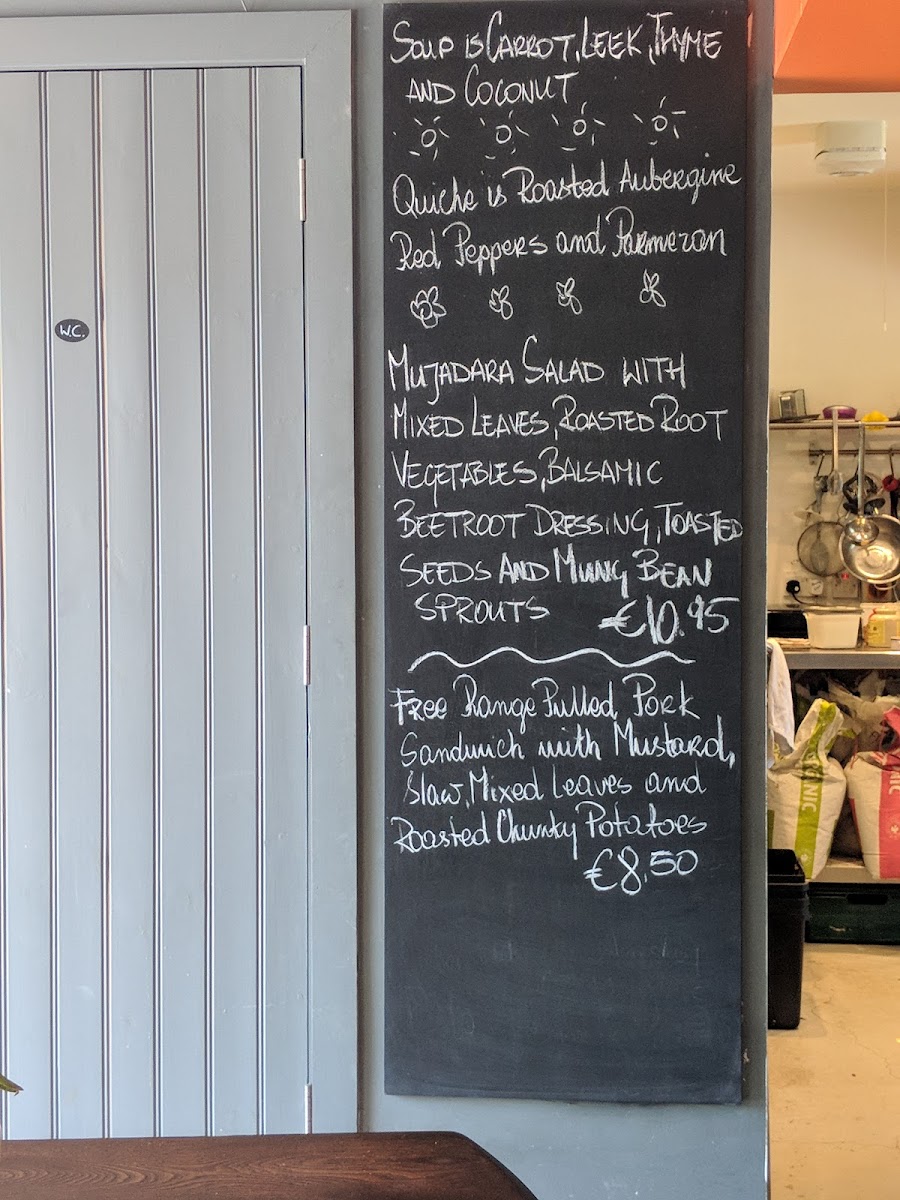 SOUP IS CARROT, LEEK, THYME
AND COCONUT
Quiche is Roasted Aubergine
Red Peppers and Parmezan
W.C.
MUJADARA SALAD WITH
MIXED LEAVES, ROASTED ROOT
VEGETABLES, BALSAMIC
BEETROOT DRESSING, TOASTED
SEEDS AND MUNG BEAN
SPROUTS €10.95
Free Range Pulled Pork
Sandwich with Mustard,
Slaw, Mixed Leaves and
Roasted Chunky Potatoes
€8.50